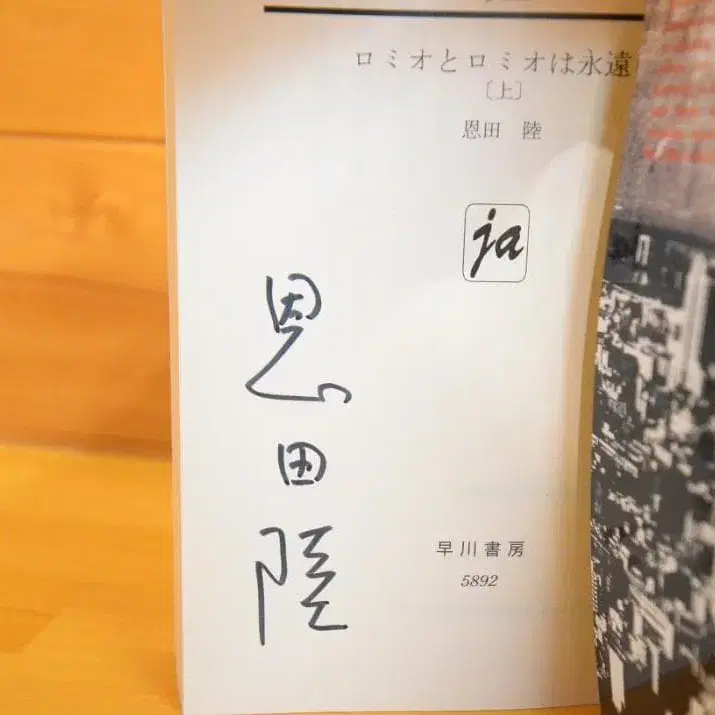 ロミオとロミオは永遠
〔上〕
恩田 陸
ja
恩田陸
早川書房
5892